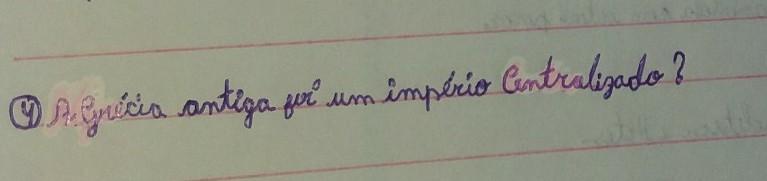 ④ A Grécia antiga foi um império Centralizado?